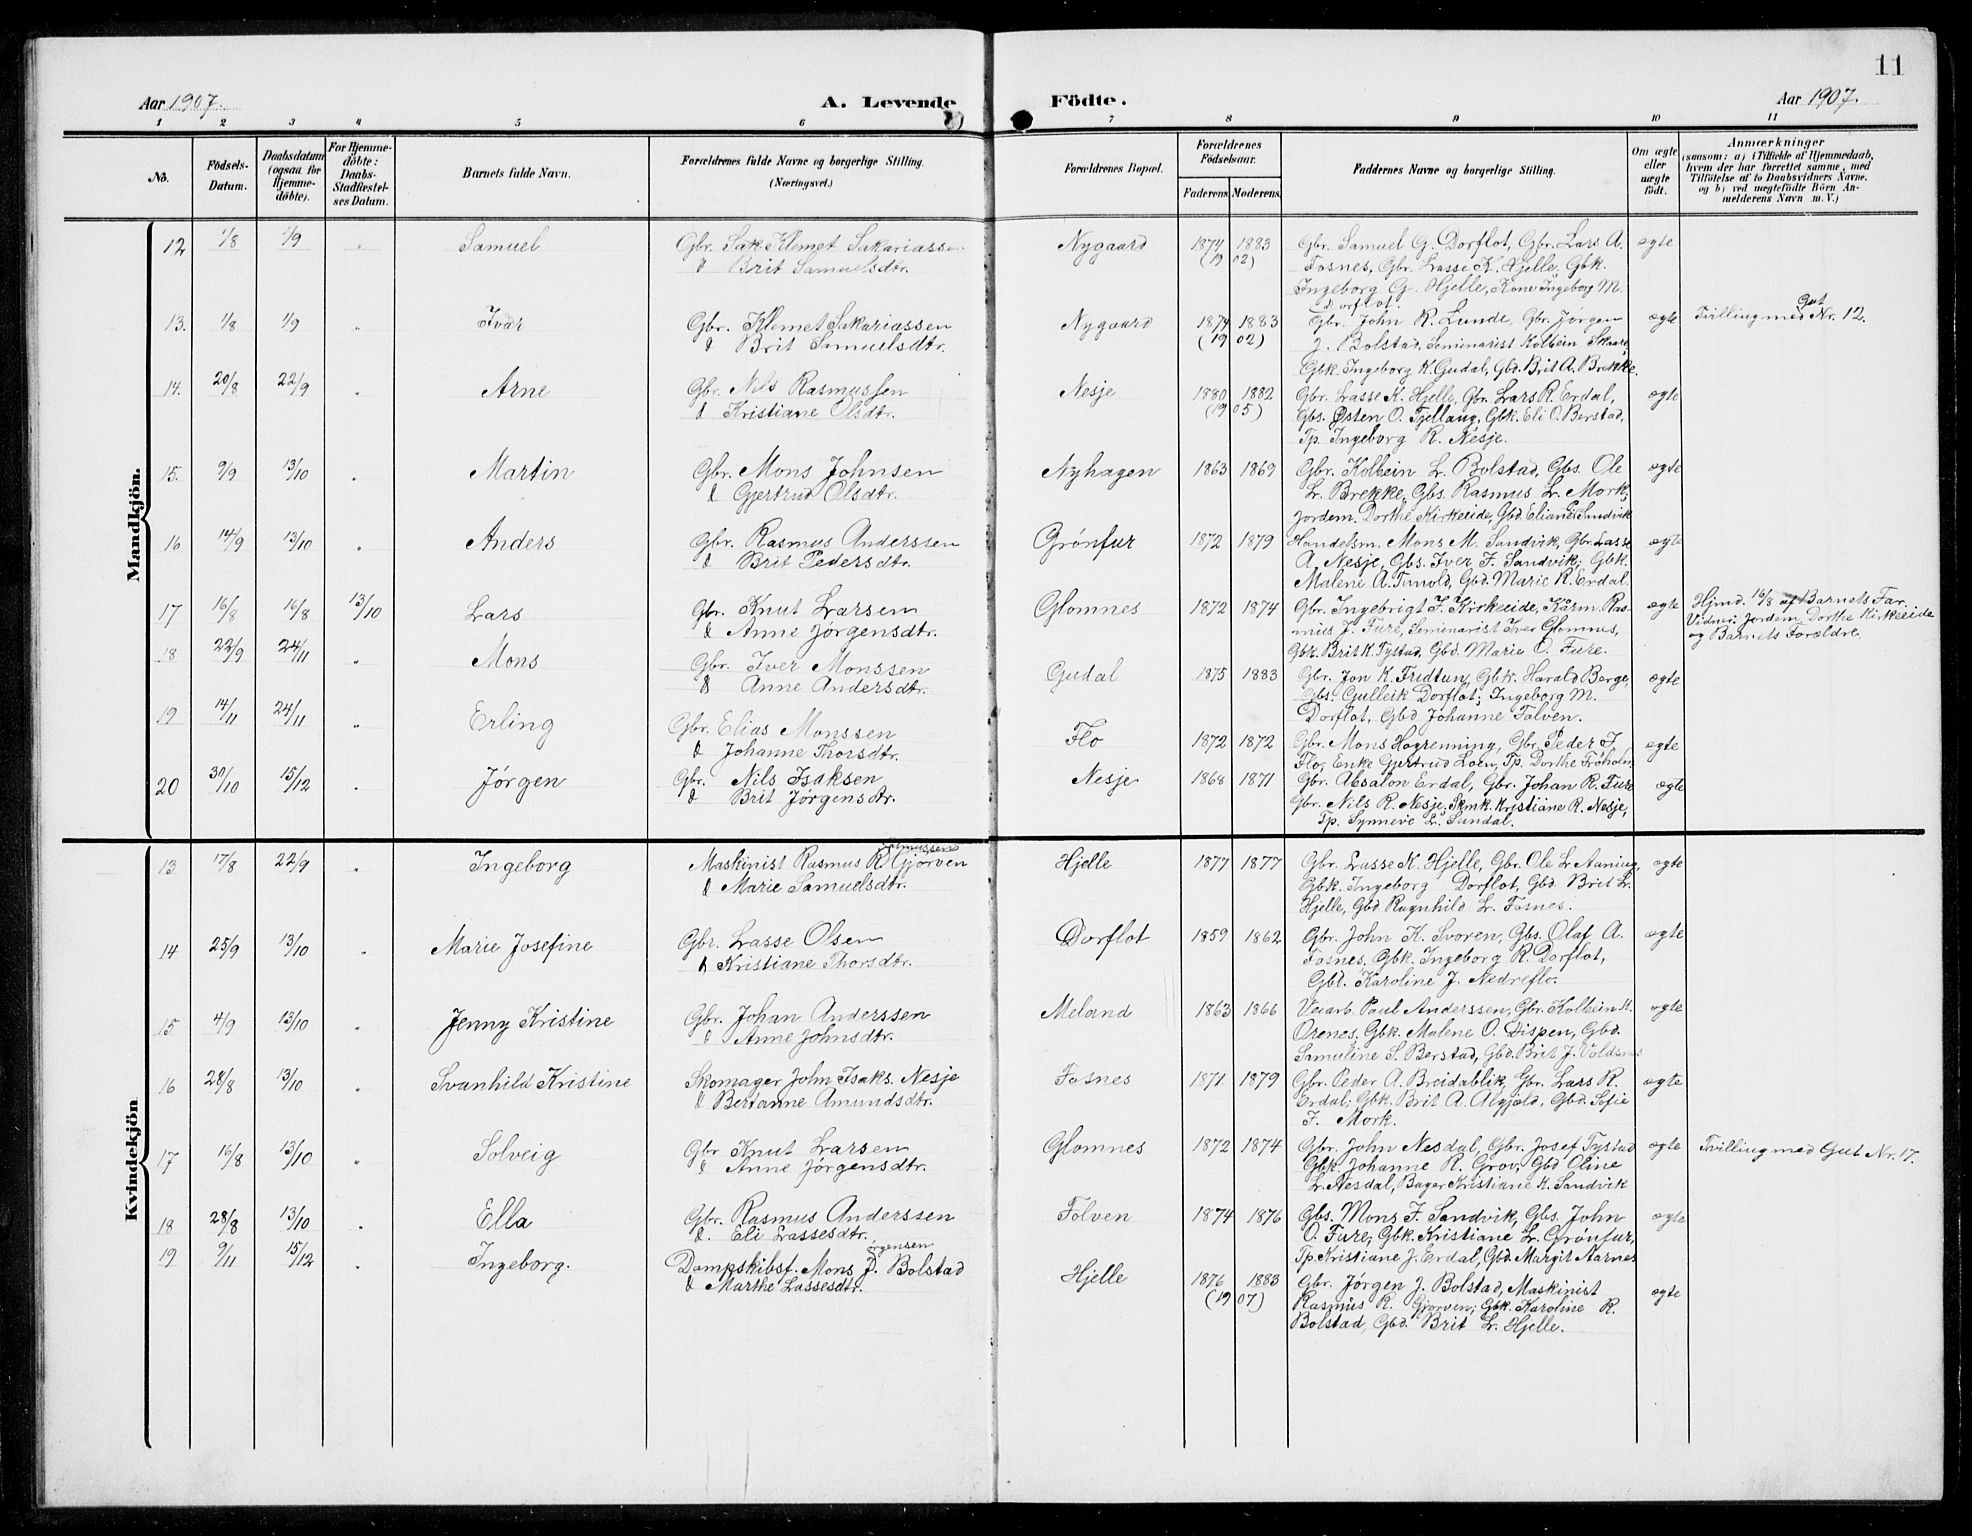 11
Aar 1907.
A. Levende Födte.
Aar 1907.
1 2 3 4 5 6 7 8 9 10 11
No.
Födsels-Datum.
Daabsdatum (ogsaa for Hjemme-döbte).
For Hjemme-döbte: Daabs-Stadfæstel-ses Datum.
Barnets fulde Navn.
Forældrenes fulde Navne og borgerlige Stilling. (Næringsvei.)
Forældrenes Bopæl.
Forældrenes Födselsaar.
Faderens. Moderens.
Faddernes Navne og borgerlige Stilling.
Om ægte eller uægte födt.
Anmærkninger
(saasom: a) i Tilfælde af Hjemmedaab, hvem der har forrettet samme, med Tilföielse af to Daabsvidners Navne, og b) ved uægtefödte Börn Anmelderens Navn m. V.)
Mandkjön.
12 1/8 1/9 " Samuel Gbr. Sak. Klemet Sakariassen Nygaard 1874 1883 Gbr. Samuel G. Dorflot, Gbr. Lars A. ægte
& Brit Samuelsdtr. (19 02) Fosnes, Gbr. Lasse K. Hjelle, Gbk.
Ingeborg G. Hjelle, Kone Ingeborg M.
Dorflot.
13. 1/8 1/9 " Ivar Gbr. Klemet Sakariassen Nygaard 1874 1883 Gbr. John R. Lunde, Gbr. Jørgen ægte Tvilling med Gut Nr. 12.
& Brit Samuelsdtr. (19 02) J. Bolstad, Seminarist Kolbein Skaare,
Gbk. Ingeborg K. Gudal, Gbd. Brit A. Brekke.
14. 20/8 22/9 " Arne Gbr. Nils Rasmussen Nesje 1880 1882 Gbr. Lasse K. Hjelle, Gbr. Lars R. Erdal, ægte
& Kristiane Olsdtr. (19 05) Gbs. Østen O. Tjellaug, Gbk. Eli O. Berstad,
Tp. Ingeborg R. Nesje.
15. 9/9 13/10 " Martin Gbr. Mons Johnsen Nyhagen 1863 1869 Gbr. Kolbein L. Bolstad, Gbs. Ole ægte
& Gjertrud Olsdtr. L. Brekke, Gbs. Rasmus L. Mork,
Jordem. Dorthe Kirkeeide, Gbd. Eliane Sandvik
16 14/9 13/10 " Anders Gbr. Rasmus Anderssen Grønfur 1872 1879 Handelsm. Mons M. Sandvik, Gbr. Lasse ægte
& Brit Pedersdtr. A. Nesje, Gbs. Iver F. Sandvik; Gbk.
Malene A. Tunold, Gbd. Marie R. Erdal.
17 16/8 16/8 13/10 Lars Gbr. Knut Larsen Glomnes 1872 1874 Gbr. Ingebrigt J. Kirkeeide, Kårm. Ras- ægte Hjmd. 16/8 af Barnets Far.
& Anne Jørgensdtr. mus J. Fure, Seminarist Iver Glomnes, Vidner: Jordem. Dorthe Kirkeeide
Gbk. Brit K. Tystad, Gbd. Marie O. Fure. og Barnets Forældre.
18 22/9 24/11 " Mons Gbr. Iver Monssen Gudal 1875 1883 Gbr. Jon K. Fridtun, Gbk. Harald Berge, ægte
& Anne Andersdtr. Gbs. Gulleik Dorflot; Ingeborg M.
Dorflot, Gbd Johanne Folven.
19 14/11 24/11 " Erling Gbr. Elias Monssen Flo 1872 1872 Gbr. Mons Høgrenning, Gbr. Peder J. ægte
& Johanne Thorsdtr. Flo, Enke Gjertrud Loen, Tp. Dorthe Frøholm
20 30/10 15/12 " Jørgen Gbr. Nils Isaksen Nesje 1868 1871 Gbr. Absalon Erdal, Gbr. Johan R. Fure ægte
& Brit Jørgensdtr. Gbr. Nils R. Nesje, Skmk. Kristiane R. Nesje,
Tp. Synneve L. Sundal.
Kvindekjön
13 17/8 22/9 " Ingeborg Maskinist Rasmus Rasmussen Gjørven Hjelle 1877 1877 Gbr. Lasse K. Hjelle, Gbr. Ole L. Aaning, ægte
& Marie Samuelsdtr. Gbk. Ingeborg Dorflot, Gbd. Brit L.
Hjelle, Gbd Ragnhild L. Fosnes.
14 25/9 13/10 " Marie Josefine Gbr. Lasse Olsen Dorflot 1859 1862 Gbr. John K. Svoren, Gbs. Olaf A. ægte
& Kristiane Thorsdtr. Fosnes, Gbk. Ingeborg R. Dorflot,
Gbd. Karoline J. Nedreflo.
15 4/9 13/10 " Jenny Kristine Gbr. Johan Anderssen Meland 1863 1866 Veiarb. Paul Anderssen, Gbr. Kolbein K. ægte
& Anne Johnsdtr. Ørenes, Gbk. Malene O. Dispen, Gbd.
Samuline S. Berstad, Gbd. Brit J. Voldsnes
16 28/8 13/10 " Svanhild Kristine Skomager John Isaks. Nesje Fosnes 1871 1879 Gbr. Peder A. Breidablik, Gbr. Lars R. ægte
& Bertanne Amundsdtr. Erdal; Gbk. Brit A. Alvjeld, Gbd. Sofie
J. Mork.
17 16/8 13/10 " Solveig Gbr Knut Larsen Glomnes 1872 1874 Gbr. John Nesdal, Gbr. Josef Tystad ægte Tvilling med Gut Nr. 17.
& Anne Jørgensdtr. Gbk. Johanne R. Grov, Gbd Oline
L. Nesdal, Bager Kristiane K. Sandvik
18 28/8 13/10 " Ella Gbr. Rasmus Anderssen Folven 1874 1876 Gbs. Mons F. Sandvik, Gbs. John ægte
&. Eli Lassesdtr. O. Fure; Gbk. Kristiane L. Grønfur,
Tp. Kristiane J. Erdal, Gbd. Margit Aarnes
19 9/11 15/12 " Ingeborg. Dampskibsf. Mons Jørgensen Bolstad Hjelle 1876 1883 Gbr. Jørgen J. Bolstad, Maskinist ægte
& Marthe Lassesdtr. (19 07) Rasmus R. Gjørven; Gbk. Karoline R.
Bolstad, Gbd. Brit L. Hjelle.